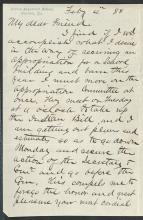 Feby 4" 88
My dear Friend
I find if I will
accomplish what I desire
in the way of securing an
appropriation for a School
building and barn this
year I must move on the
appropriation Committee at
once. They meet on Tuesday
at 2 o'clock to take up
the Indian Bill and I
am getting out plans and
estimates so as to go down
Monday and secure the
action of the Secretary &
and go before the
Com. This compels me to
forego the honor and great
pleasure your most cordial